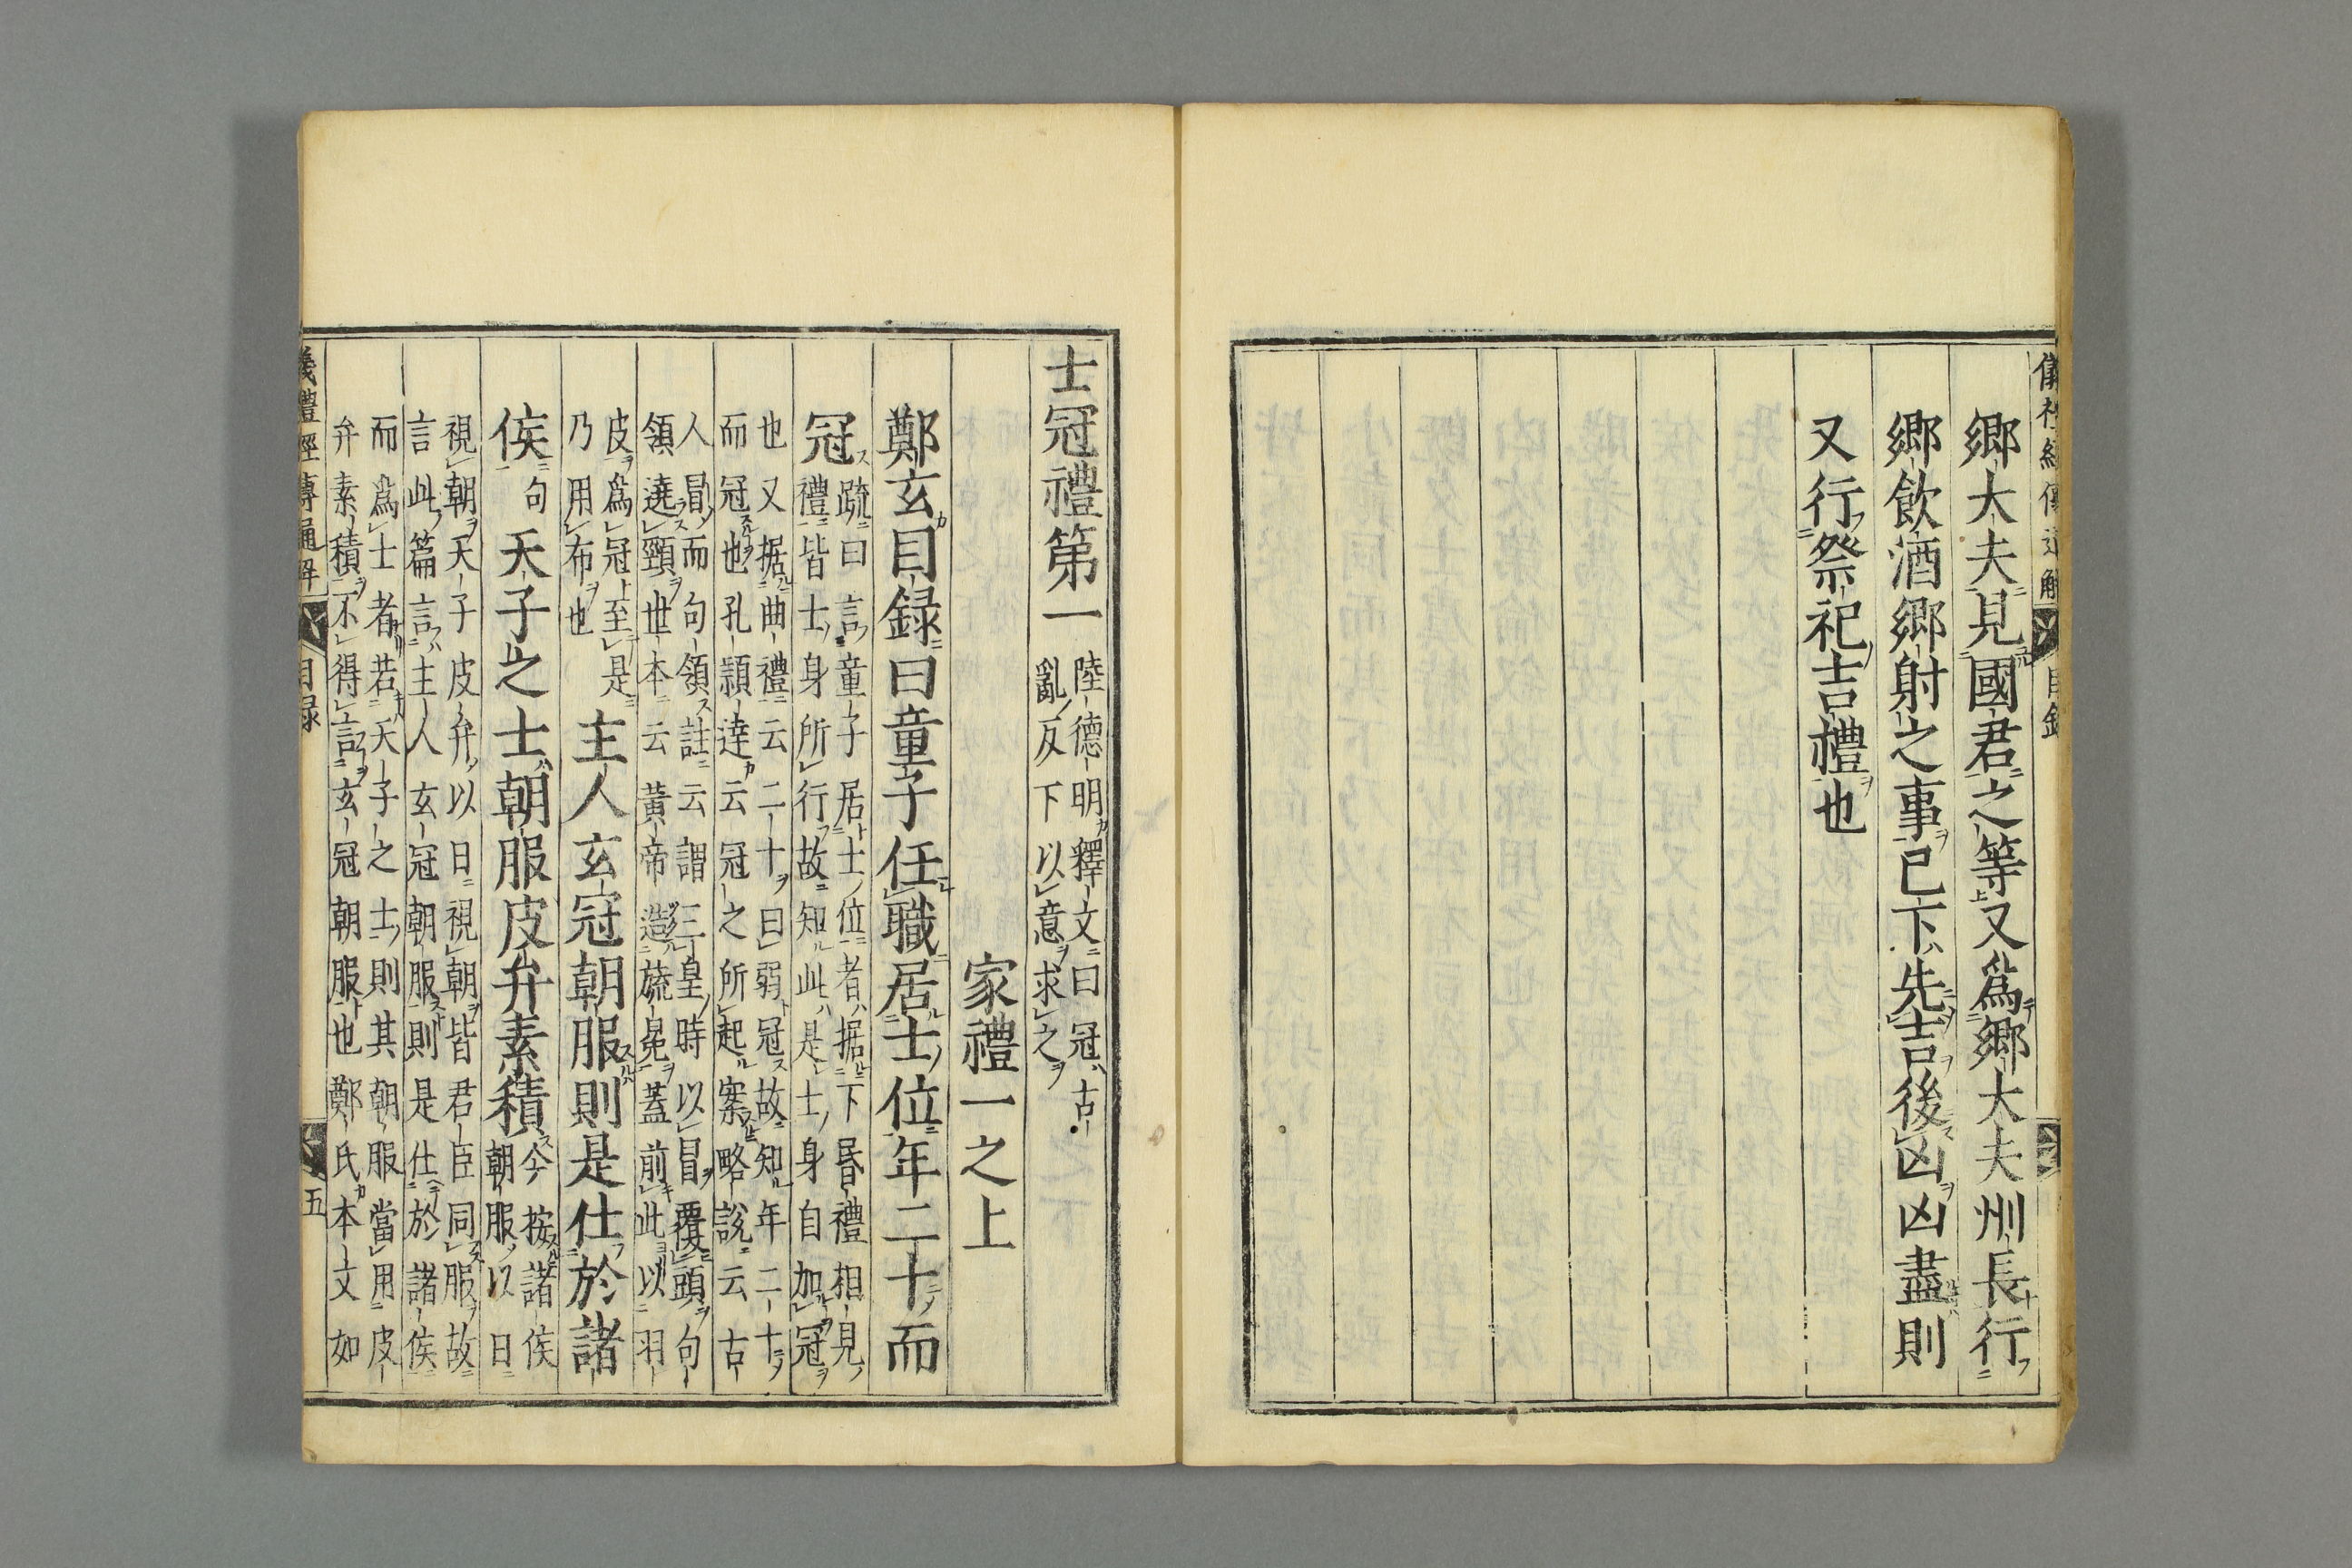 儀禮經傳通解 目錄
鄉大夫見國君之等又爲鄉大夫州長行
鄉飲酒鄉射之事已下先吉後凶凶盡則
又行祭祀吉禮也
士冠禮第一
陸德明釋文曰冠古
亂反下以意求之
家禮一之上
鄭玄目録曰童子任職居士位年二十而
冠
疏曰言童子居士位者据下昏禮相見
禮皆士身所行故知此是士身自加冠
也又据曲禮云二十曰弱冠故知年二十
而冠也孔穎達云冠之所起案略說云古
人冒而句領註云謂三皇時以冒覆頭句
領遶頸世本云黃帝造旒冕蓋前此以羽
皮爲冠至是
乃用布也
主人玄冠朝服則是仕於諸
侯
句
天子之士朝服皮弁素積
今按諸侯
朝服以日
視朝天子皮弁以日視朝皆君臣同服故
言此篇言主人玄冠朝服則是仕於諸侯
而爲士者若天子之士則其朝服當用皮
弁素積不得言玄冠朝服也鄭氏本文如
儀禮經傳通解 目録 五